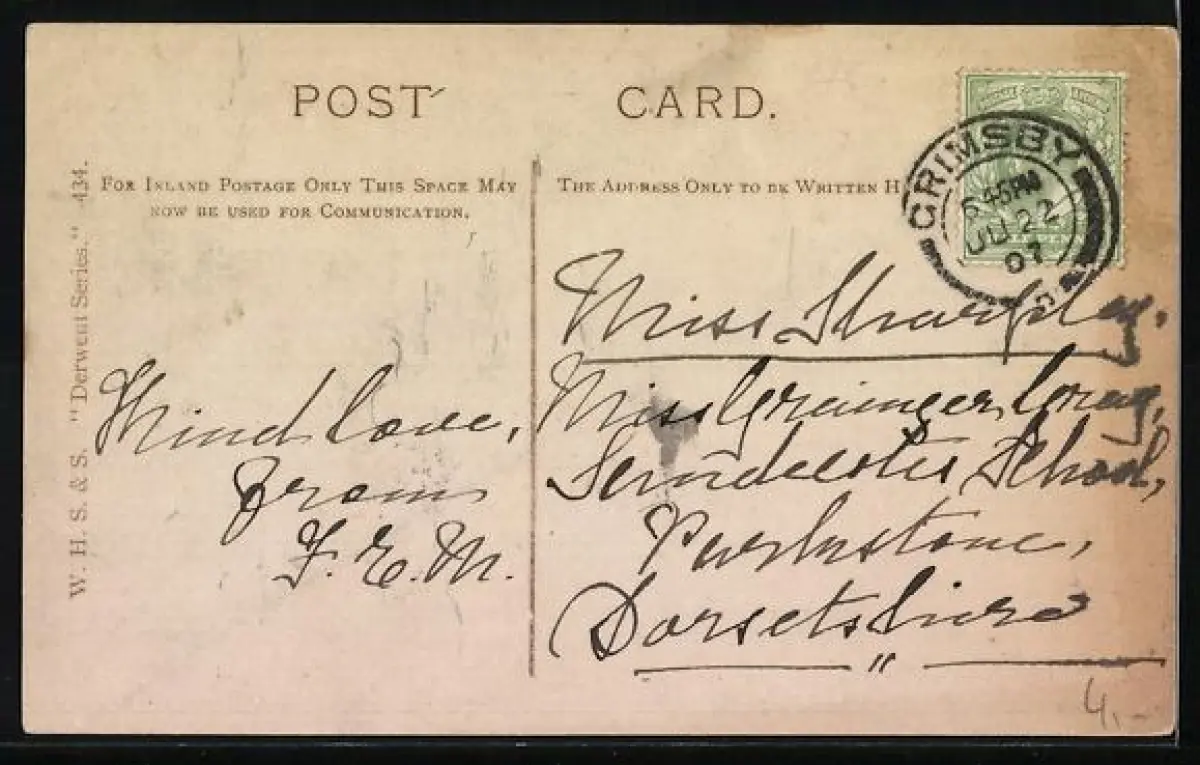 POST CARD.
FOR INLAND POSTAGE ONLY THIS SPACE MAY
NOW BE USED FOR COMMUNICATION.
THE ADDRESS ONLY TO BE WRITTEN H
W. H. S. & S. "Derwent Series." 434.
GRIMSBY
6 45PM
JU 22
07
Miss Sharpley,
Miss Grainger Gray,
School,
Parkstone,
Dorsetshire
Kind love,
From
F. E. M.
4,-